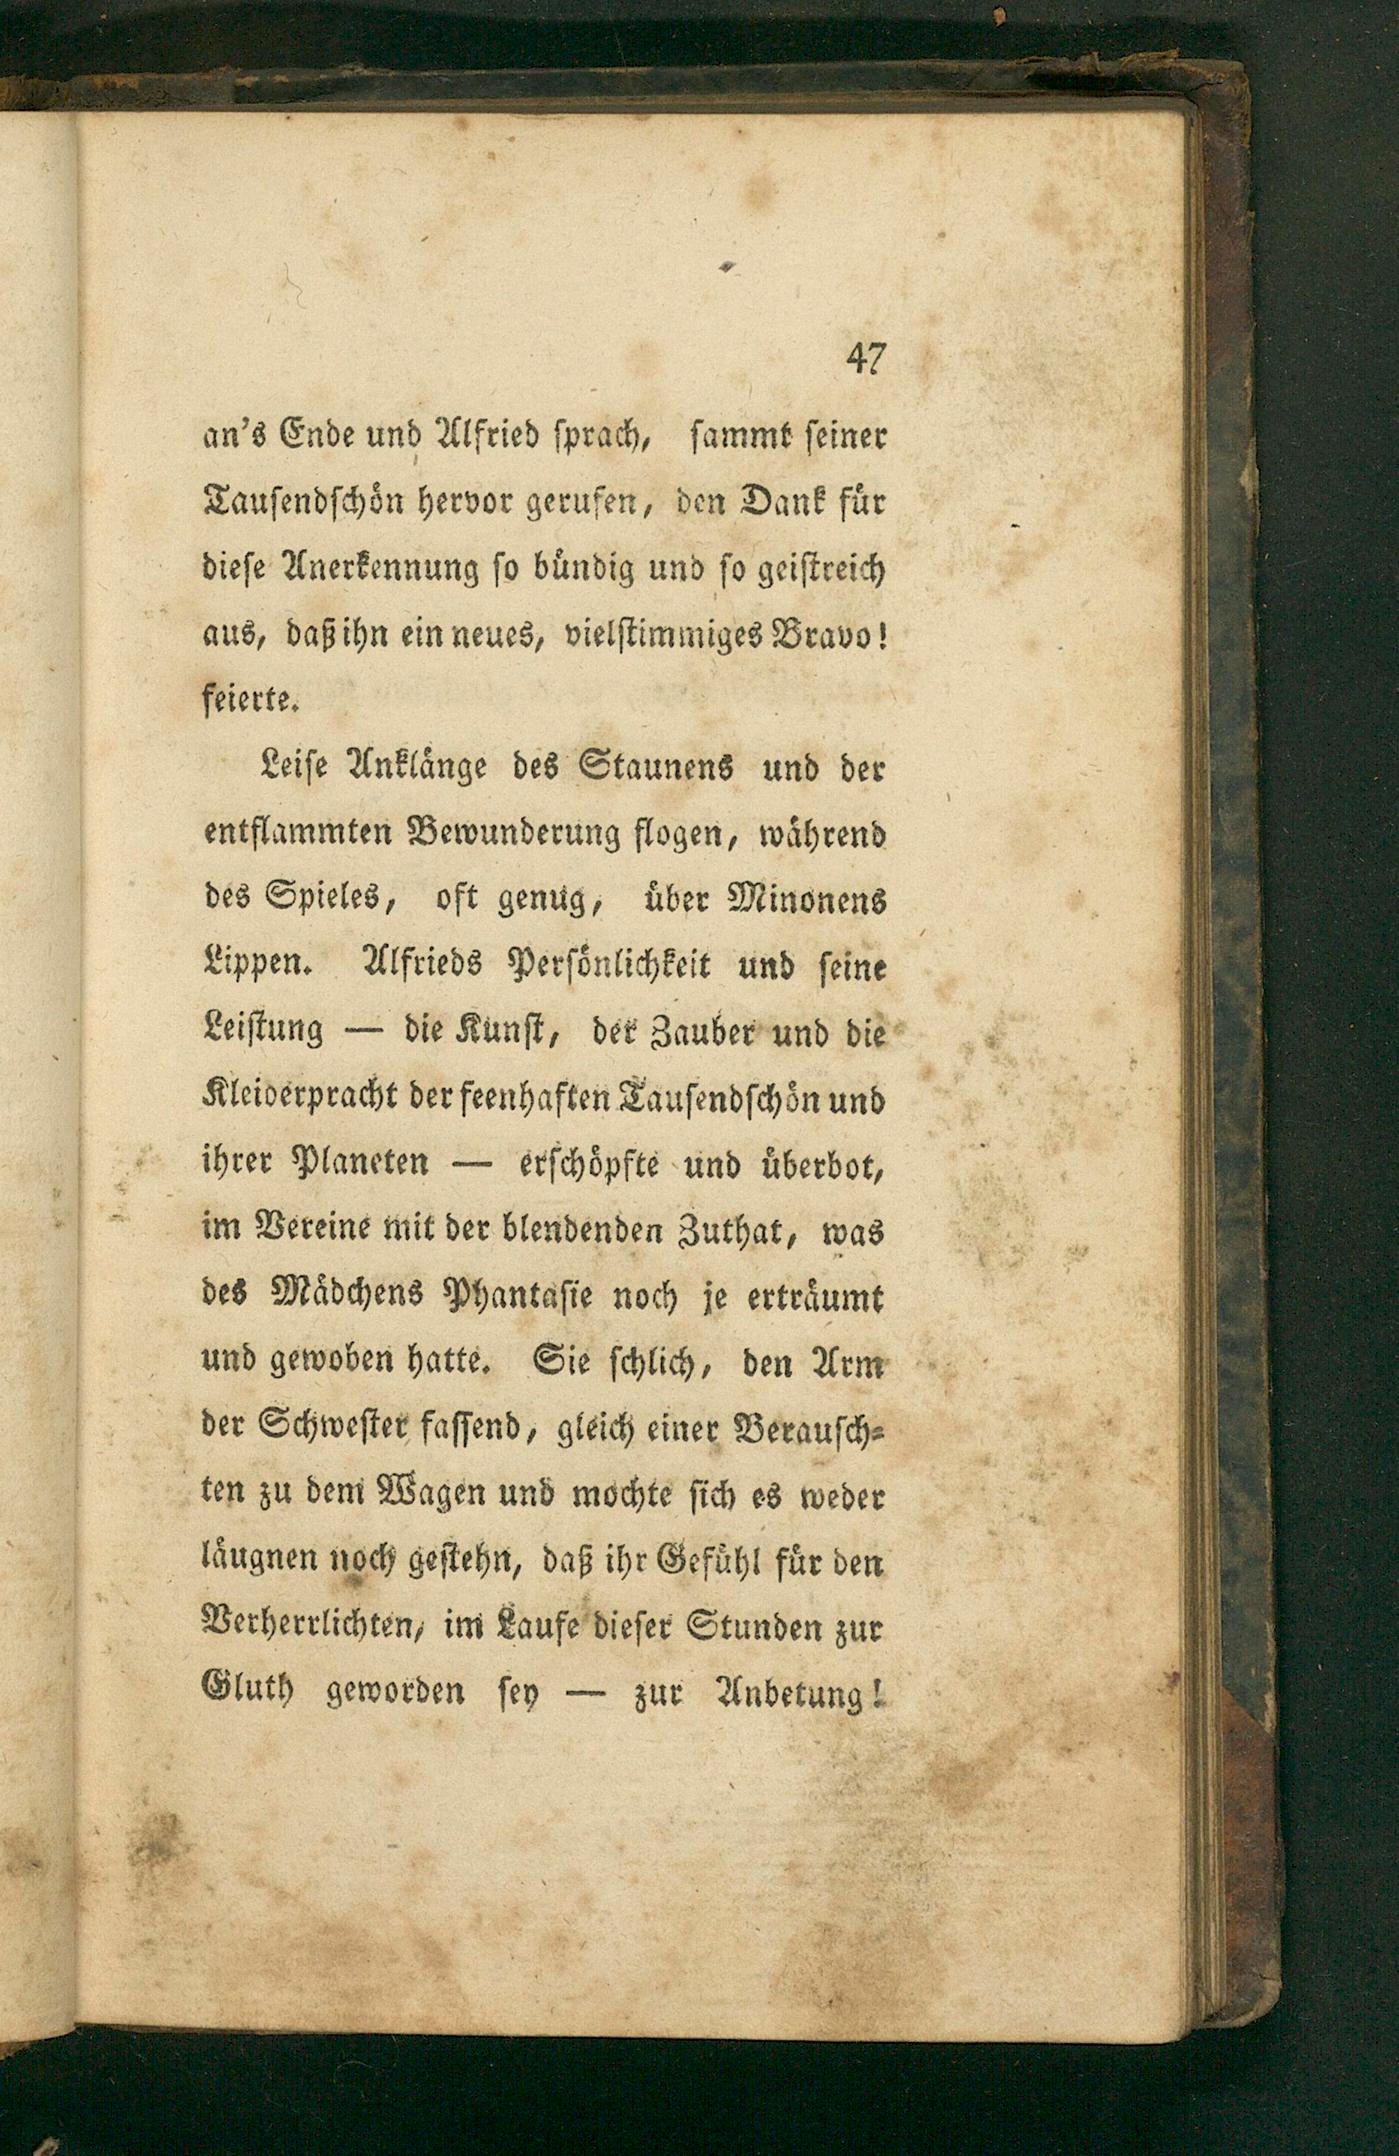 47
an's Ende und Alfried sprach, sammt seiner
Tausendschön hervor gerufen, den Dank für
diese Anerkennung so bündig und so geistreich
aus, daß ihn ein neues, vielstimmiges Bravo!
feierte.
Leise Anklänge des Staunens und der
entflammten Bewunderung flogen, während
des Spieles, oft genug, über Minonens
Lippen. Alfrieds Persönlichkeit und seine
Leistung — die Kunst, der Zauber und die
Kleiderpracht der feenhaften Tausendschön und
ihrer Planeten — erschöpfte und überbot,
im Vereine mit der blendenden Zuthat, was
des Mädchens Phantasie noch je erträumt
und gewoben hatte. Sie schlich, den Arm
der Schwester fassend, gleich einer Berausch-
ten zu dem Wagen und mochte sich es weder
läugnen noch gestehn, daß ihr Gefühl für den
Verherrlichten, im Laufe dieser Stunden zur
Gluth geworden sey — zur Anbetung!